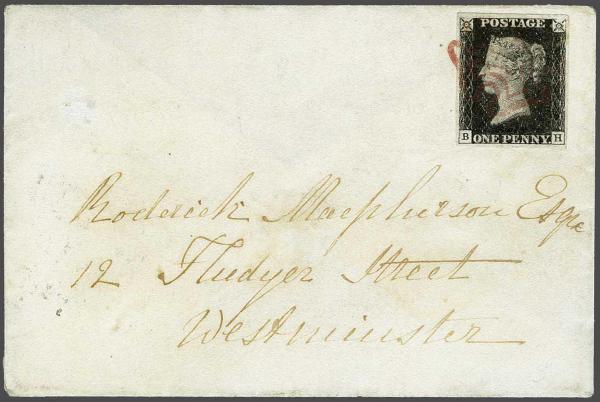 POSTAGE
B H
ONE PENNY
Roderick Macpherson Esqre
12 Fludyer Street
Westminster